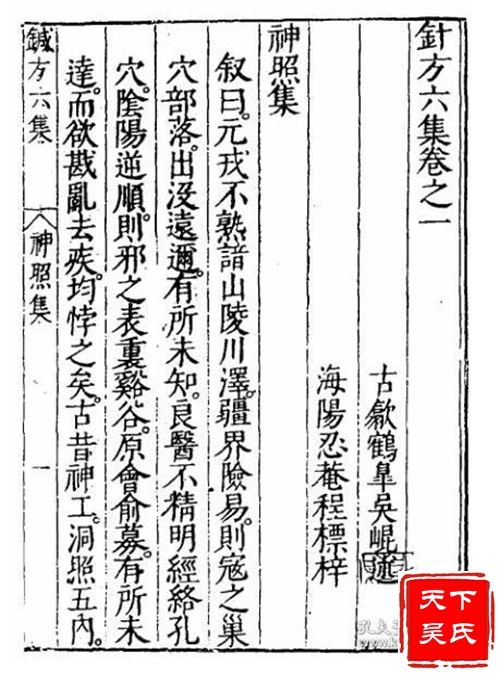 針方六集卷之一
古歙鶴皐吳崐述
海陽忍菴程標梓
神照集
叙曰。元戎不熟諳山陵川澤。疆界險易。則寇之巢
穴部落。出没遠邇。有所未知。良醫不精明經絡孔
穴。陰陽逆順。則邪之表裏谿谷。原會俞募。有所未
達。而欲戡亂去疾。均悖之矣。古昔神工。洞照五内。
鍼方六集
神照集
一
天下
吳氏